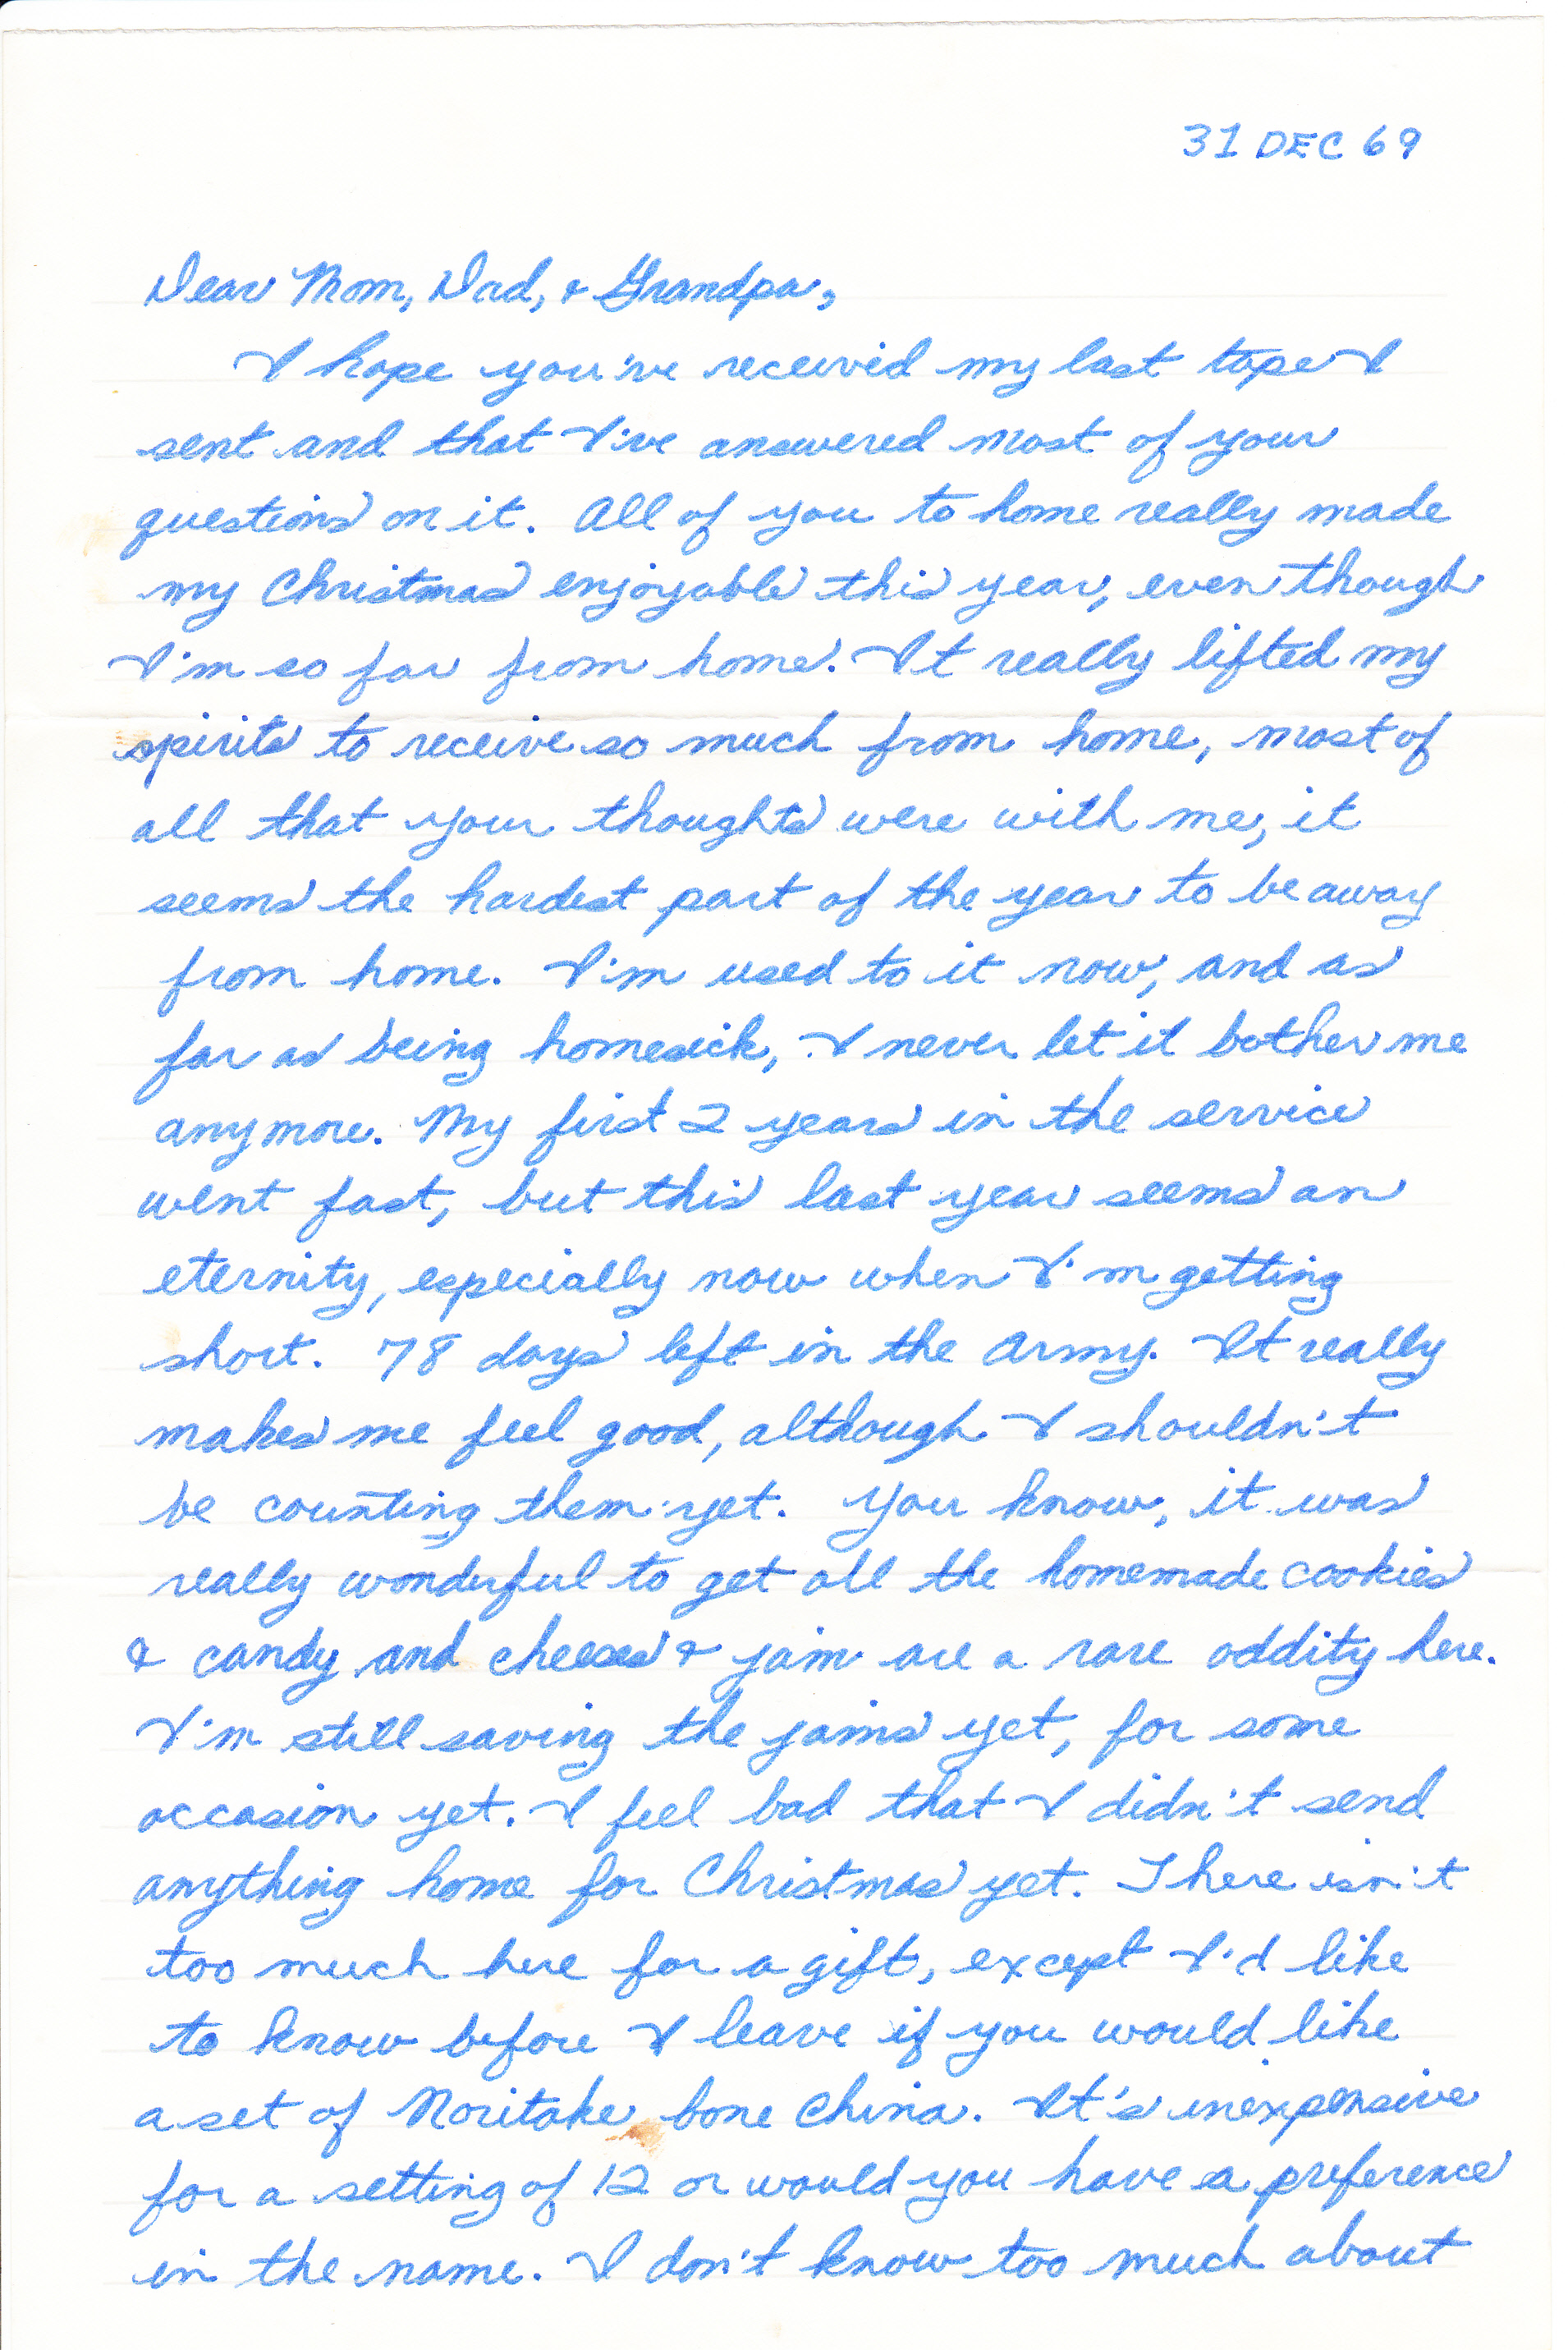 31 DEC 69
Dear Mom, Dad, & Grandpa,
I hope you've received my last tape I
sent and that I've answered most of your
questions on it. All of you to home really made
my Christmas enjoyable this year, even though
I'm so far from home. It really lifted my
spirits to receive so much from home, most of
all that your thoughts were with me, it
seems the hardest part of the year to be away
from home. I'm used to it now, and as
far as being homesick, I never let it bother me
anymore. My first 2 years in the service
went fast, but this last year seems an
eternity, especially now when I'm getting
short. 78 days left in the Army. It really
makes me feel good, although I shouldn't
be counting them yet. You know, it was
really wonderful to get all the homemade cookies
& candy and cheeses & jam are a rare oddity here.
I'm still saving the jams yet, for some
occasion yet. I feel bad that I didn't send
anything home for Christmas yet. There isn't
too much here for a gift, except I'd like
to know before I leave if you would like
a set of Noritake bone China. It's inexpensive
for a setting of 12 or would you have a preference
in the name. I don't know too much about